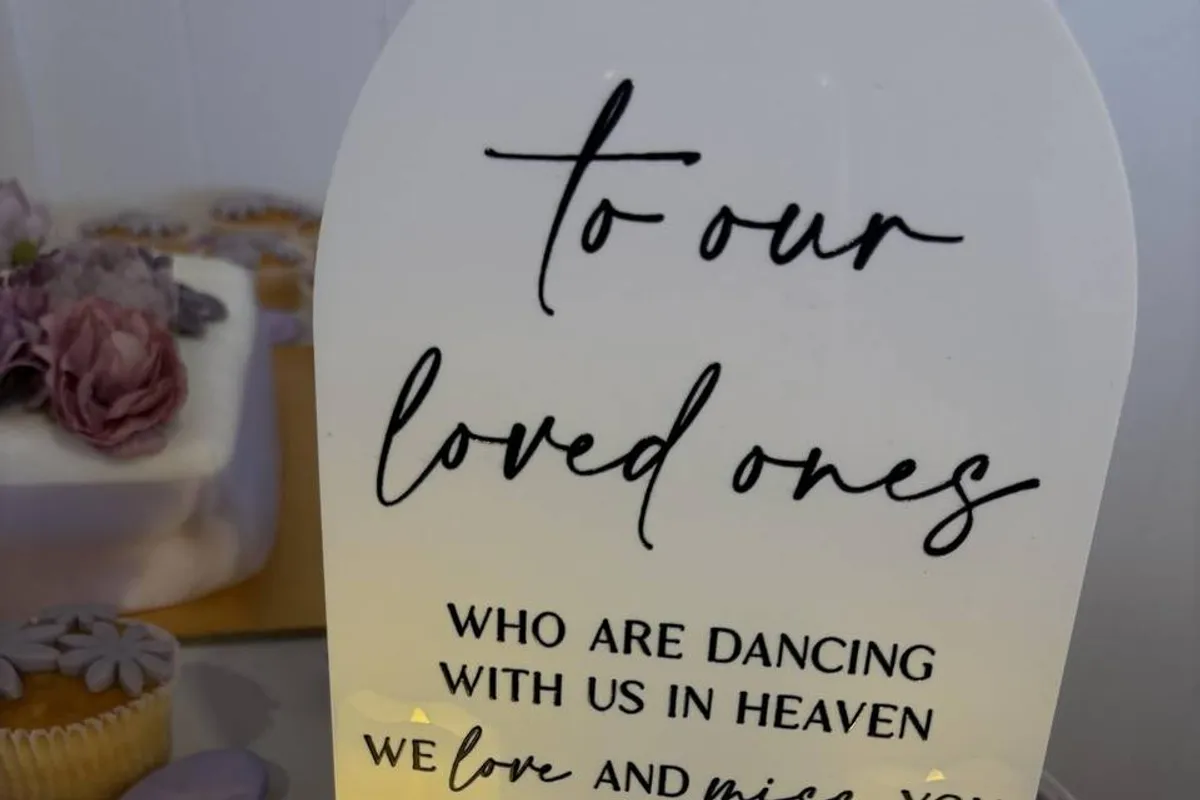 to our
loved ones
WHO ARE DANCING
WITH US IN HEAVEN
WE love AND miss YOU